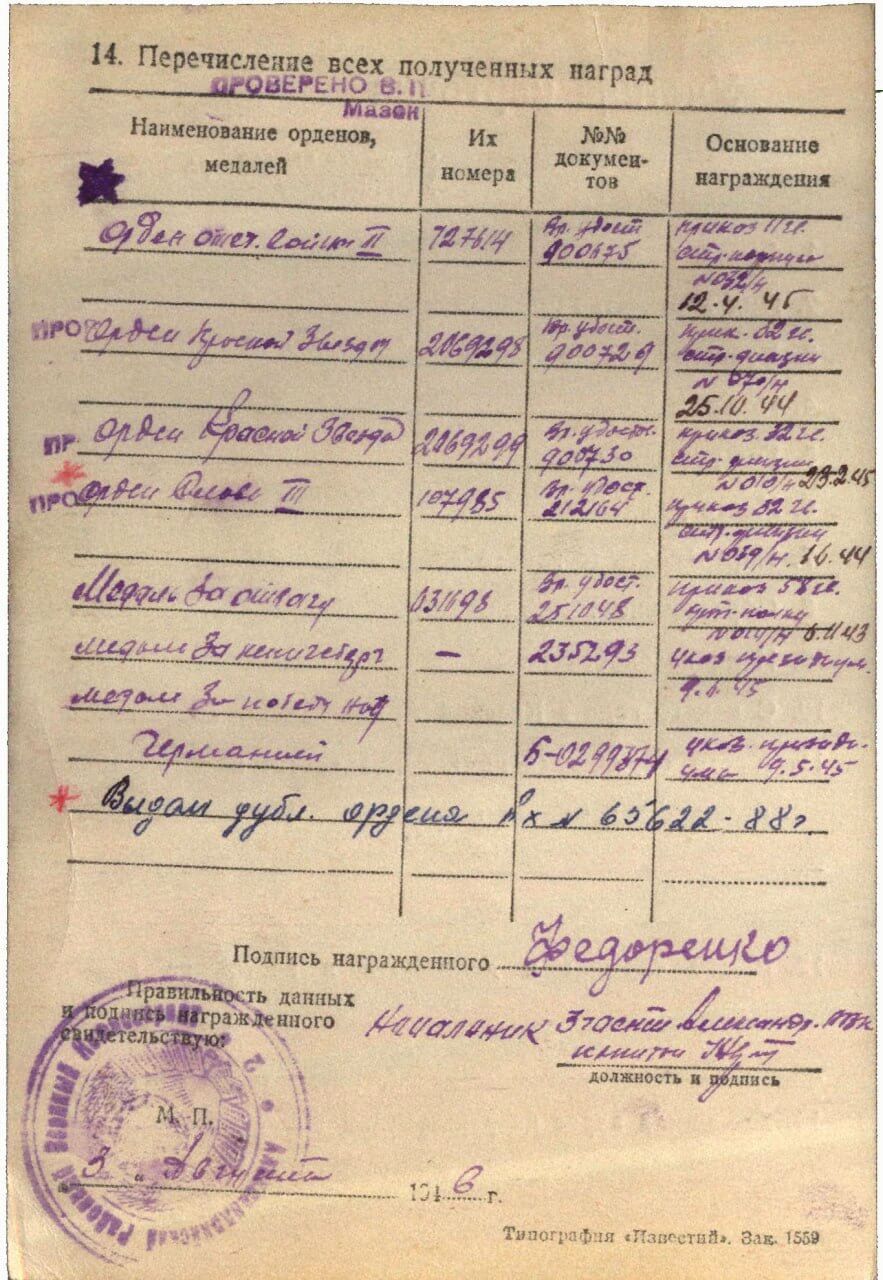 14. Перечисление всех полученных наград
ПРОВЕРЕНО В. П
Мазон
Наименование орденов, медалей
Их номера
№№ документов
Основание награждения
Орден отеч. войны II 727614 Вр. удост. 900675 приказ 11 гв.
стр. корпуса
N 032/н
12.4.45
ПРО Орден Красной Звезды 2069298 Вр. удост. 900729 прик. 32 гв.
стр. дивизии
N 070/н
25.10.44
ПР. Орден Красной Звезды 2069299 Вр. удост. 900730 приказ 32 гв.
стр. дивизии
N 010/н 23.2.45
ПРО Орден Славы III 107985 Вр. удост. 212164 приказ 32 гв.
стр. дивизии
N 039/н 1.6.44
Медаль За отвагу 031698 Вр. удост. 251048 приказ 58 гв.
арт. полка
медаль За кенигсберг — 235293 указ президиум.
9.6.45
медаль За победу над
Германией Б-0299874 указ. президи-
ума 9.5.45
Выдан дубл. ордена Вх N 65622-88г.
Подпись награжденного Федоренко
Правильность данных
и подпись награжденного
свидетельствую:
Начальник 3 части Александр.
капитан
должность и подпись
М. П.
3 „ Августа 1946 г.
Типография «Известий». Зак. 1559